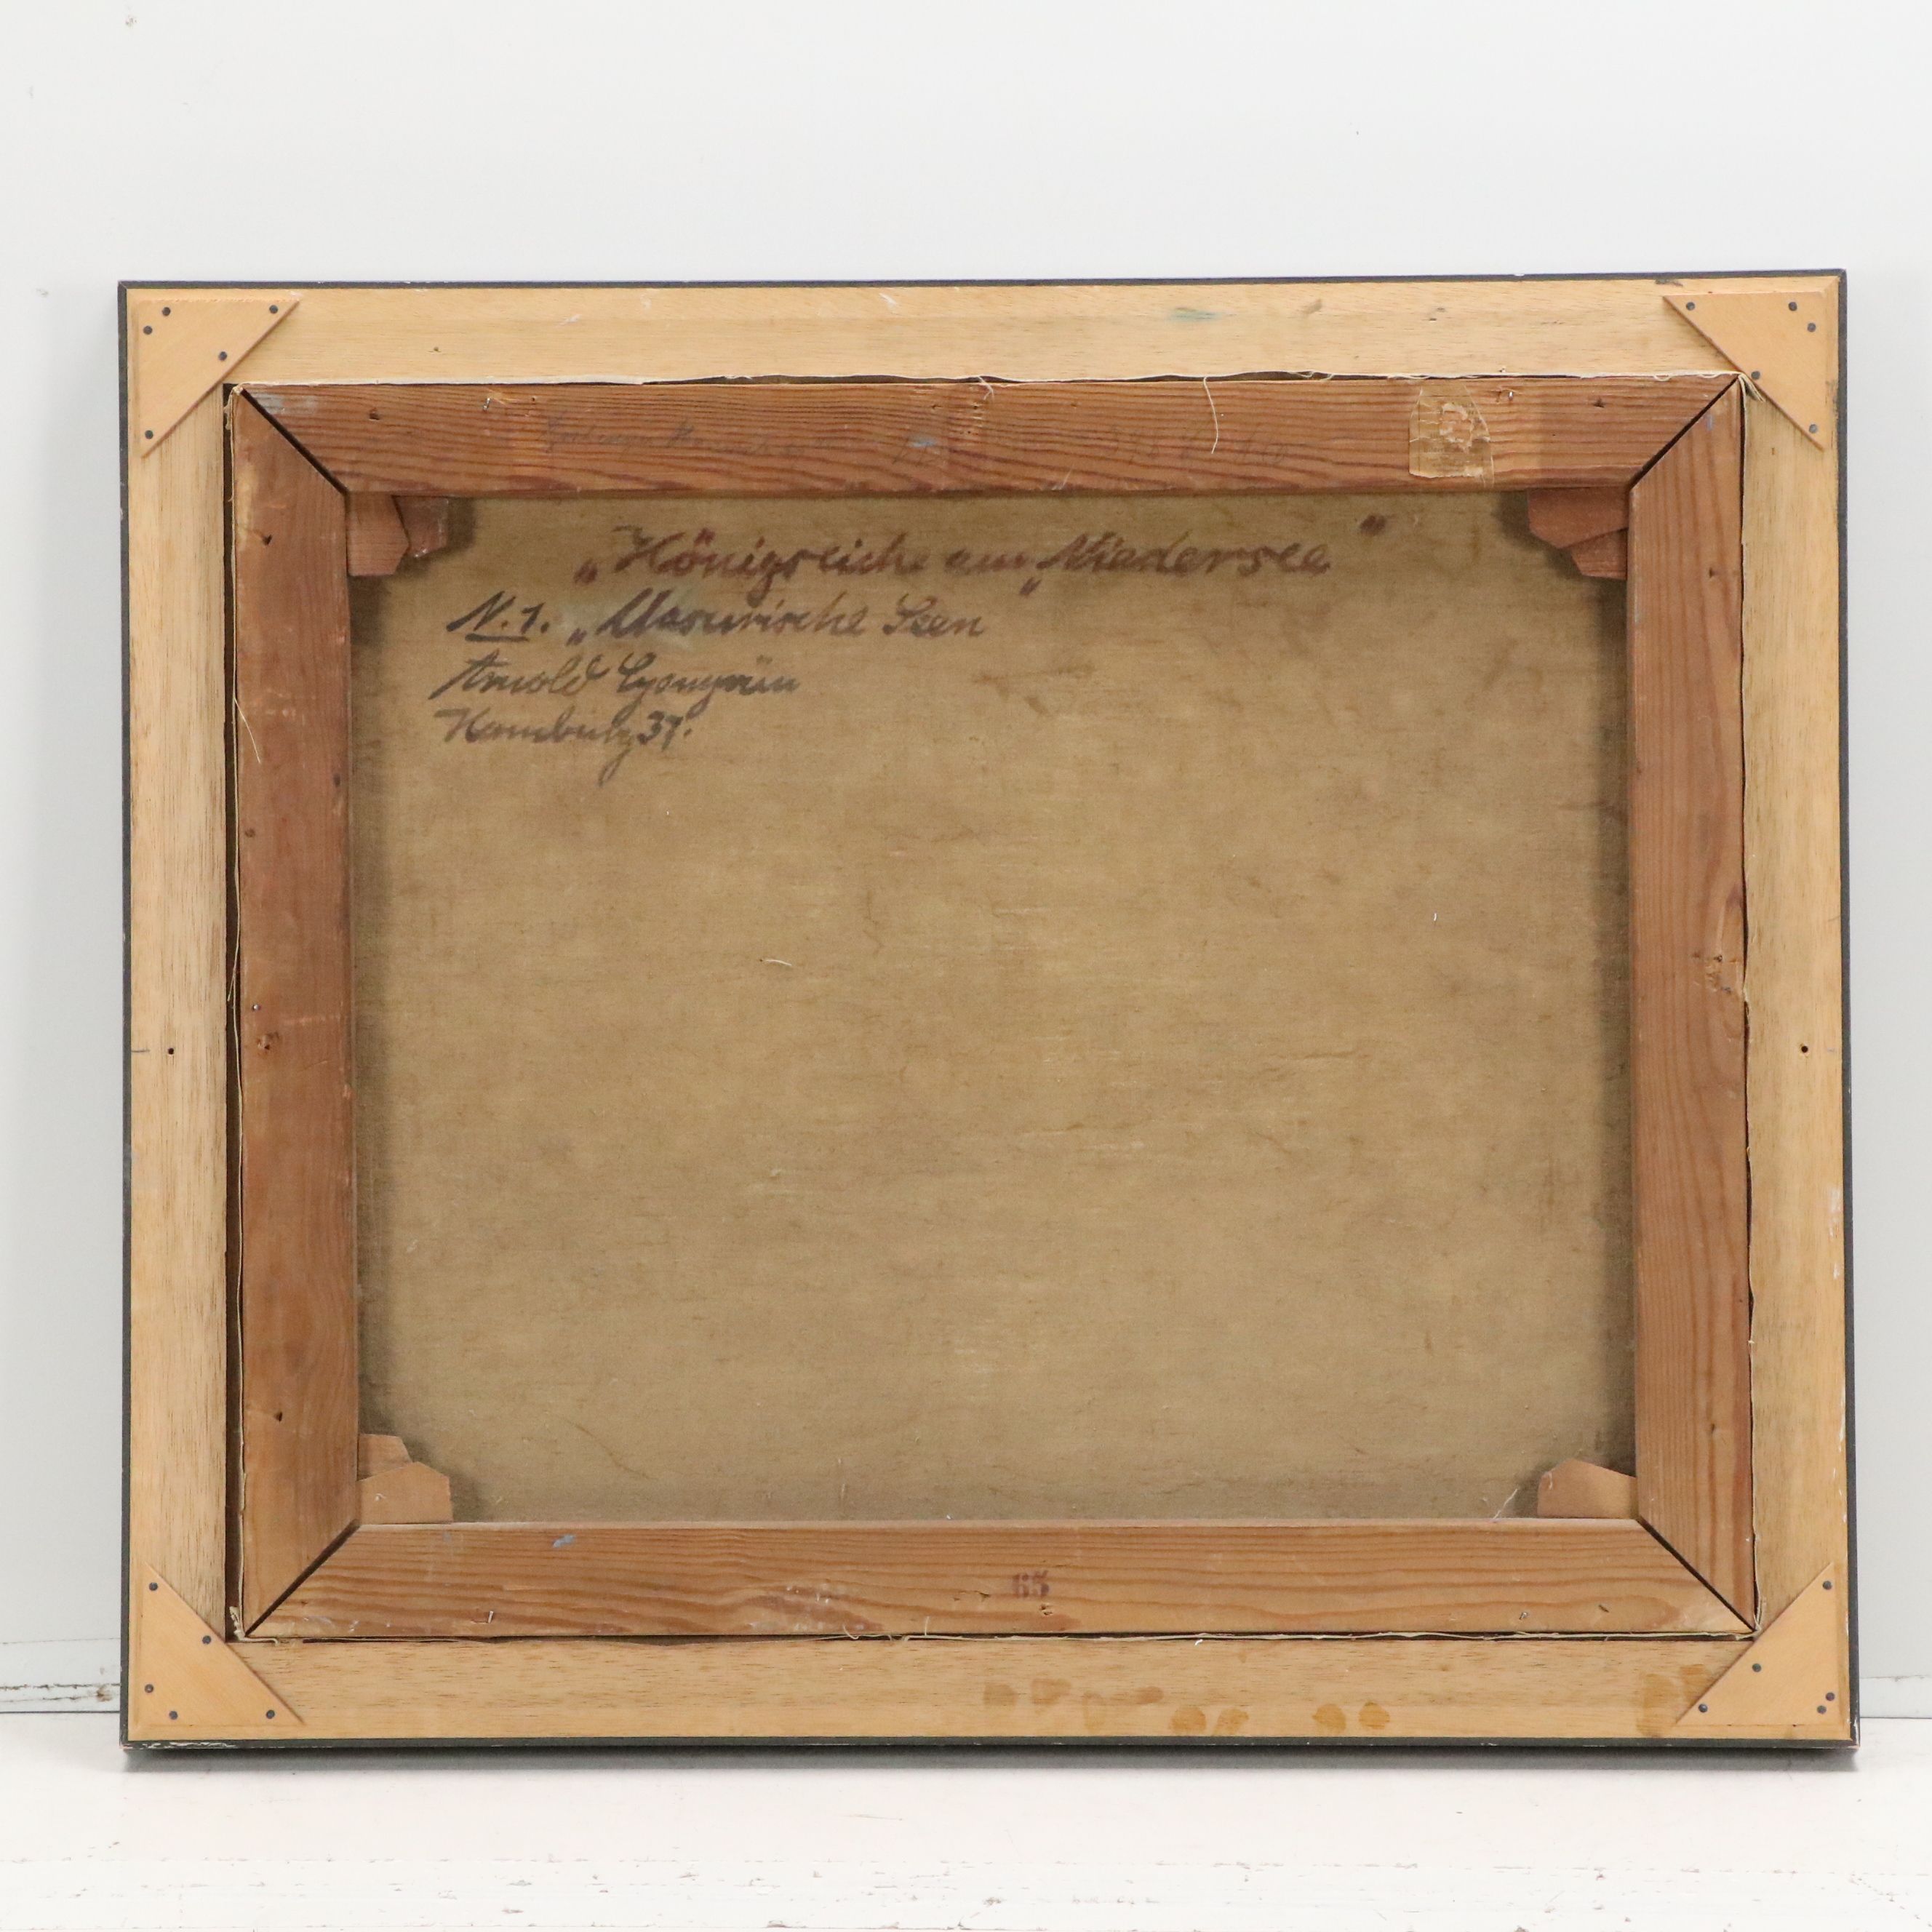 „Königseiche am „Niedersee"
N.1. „Masurische Seen
Arnold Lyongrün
Hamburg 37.
65